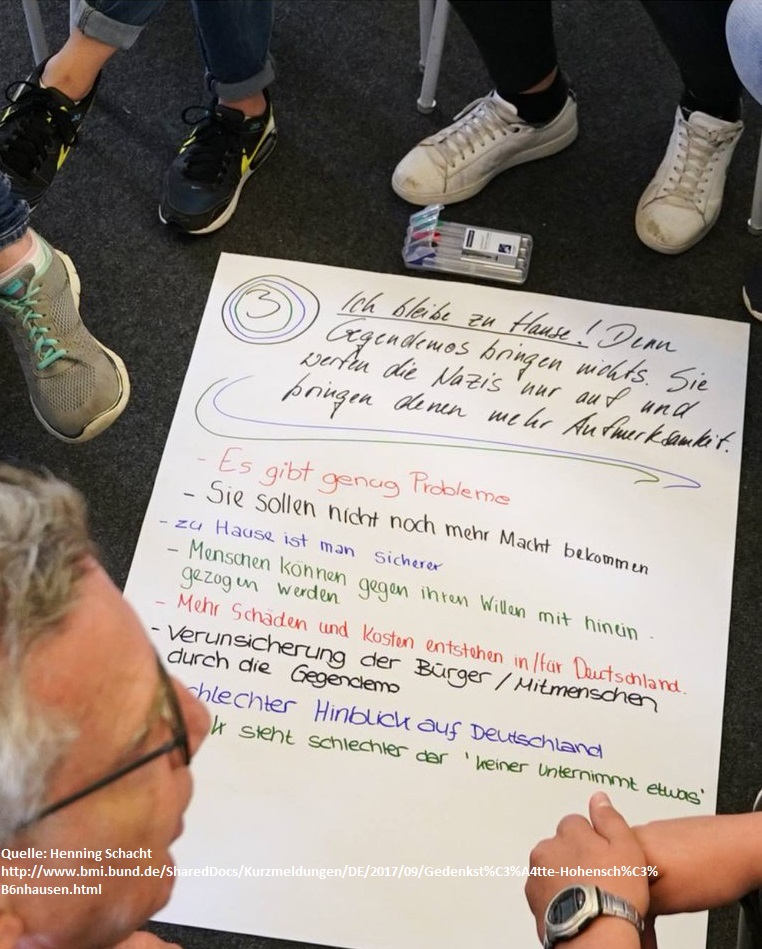 3
Ich bleibe zu Hause! Denn
Gegendemos bringen nichts. Sie
werten die Nazis nur auf und
bringen denen mehr Aufmerksamkeit.
- Es gibt genug Probleme
- Sie sollen nicht noch mehr Macht bekommen
- zu Hause ist man sicherer
- Menschen können gegen ihren Willen mit hinein
gezogen werden
- Mehr Schäden und Kosten entstehen in/für Deutschland.
- Verunsicherung der Bürger / Mitmenschen
durch die Gegendemo
chlechter Hinblick auf Deutschland
k steht schlechter dar 'keiner unternimmt etwas'
Quelle: Henning Schacht
http://www.bmi.bund.de/SharedDocs/Kurzmeldungen/DE/2017/09/Gedenkst%C3%A4tte-Hohensch%C3%
B6nhausen.html